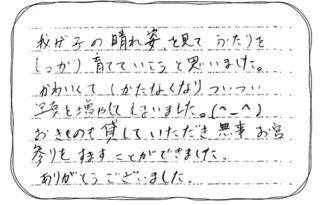 我が子の晴れ姿を見て ふたりを
しっかり育てていこうと思いました。
かわいくてしかたなくなり ついつい
写真を増やしてしまいました。(^-^)
おきものも貸していただき 無事 お宮
参りをすますことができました。
ありがとうございました。